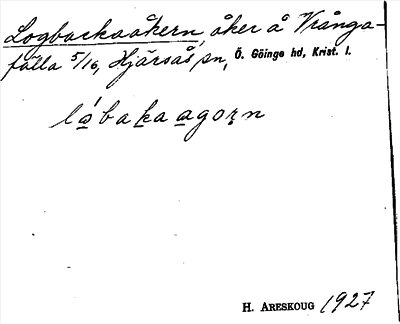 Logbackaåkern, åker å Vrånga-
fälla 5/16, Hjärsås sn, Ö. Göinge hd, Krist. l.
lábakaagorn
H. ARESKOUG 1927